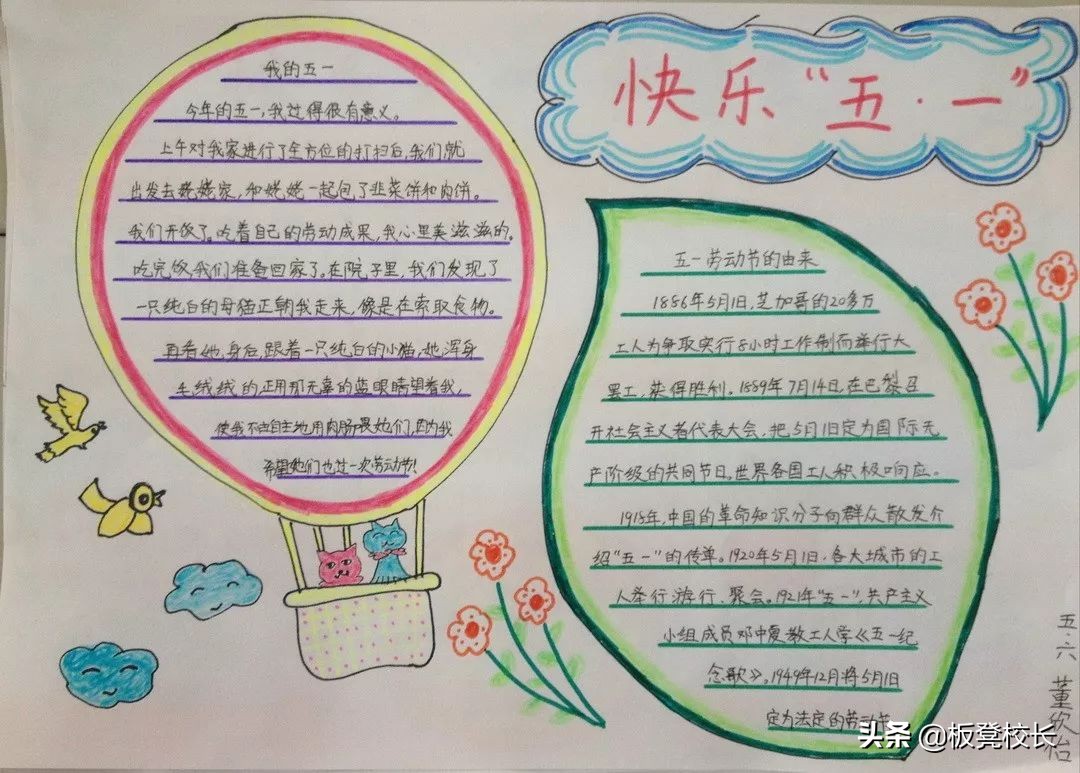 快乐“五·一”
我的五一
今年的五一,我过得很有意义。
上午对我家进行了全方位的打扫后,我们就
出发去姥姥家,和姥姥一起包了韭菜饼和肉饼。
我们开饭了。吃着自己的劳动成果,我心里美滋滋的。
吃完饭,我们准备回家了。在院子里,我们发现了
一只纯白的母猫正朝我走来,像是在索取食物。
再看她,身后,跟着一只纯白的小猫,她浑身
毛绒绒的正用那无辜的蓝眼睛望着我,
使我不由自主地用肉肠喂她们,因为我
希望她们也过一次劳动节!
五一劳动节的由来
1886年5月1日,芝加哥的20多万
工人为争取实行8小时工作制而举行大
罢工,获得胜利。1889年7月14日,在巴黎召
开社会主义者代表大会,把5月1日定为国际无
产阶级的共同节日。世界各国工人积极响应。
1918年,中国的革命知识分子向群众散发介
绍“五一”的传单。1920年5月1日,各大城市的工
人举行游行、聚会。1921年“五一”,共产主义
小组成员邓中夏教工人学《五一纪
念歌》。1949年12月将5月1日
定为法定的劳动节
五·六 董欣怡
头条 @板凳校长